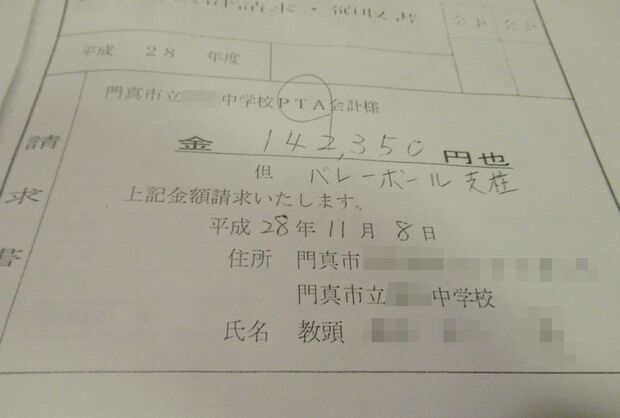 請求・領収書
会長 会計
平成 28 年度
門真市立 中学校PTA会計様
金 142,350 円也
但 バレーボール支柱
上記金額請求いたします。
平成28年11月8日
住所 門真市
門真市立 中学校
氏名 教頭
請求書